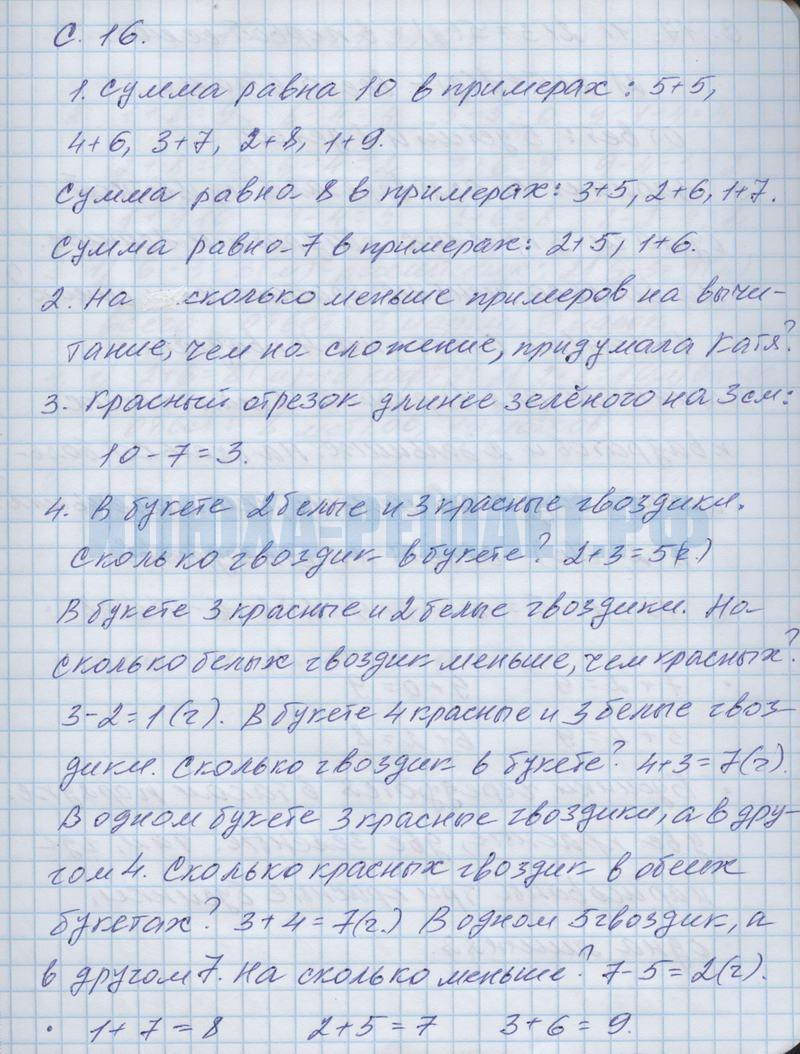 С. 16.
1. Сумма равна 10 в примерах: 5+5,
4+6, 3+7, 2+8, 1+9.
Сумма равна 8 в примерах: 3+5, 2+6, 1+7.
Сумма равна 7 в примерах: 2+5, 1+6.
2. На сколько меньше примеров на вычи-
тание, чем на сложение, придумала Катя?
3. Красный отрезок длинее зелёного на 3 см:
10 - 7 = 3.
4. В букете 2 белые и 3 красные гвоздики.
Сколько гвоздик в букете? 2+3=5(г.)
В букете 3 красные и 2 белые гвоздики. На
сколько белых гвоздик меньше, чем красных?
3-2=1(г). В букете 4 красные и 3 белые гвоз-
дики. Сколько гвоздик в букете? 4+3=7(г).
В одном букете 3 красные гвоздики, а в дру-
гом 4. Сколько красных гвоздик в обеих
букетах? 3+4=7(г.) В одном 5 гвоздик, а
в другом 7. На сколько меньше? 7-5=2(г).
• 1+7=8 2+5=7 3+6=9.